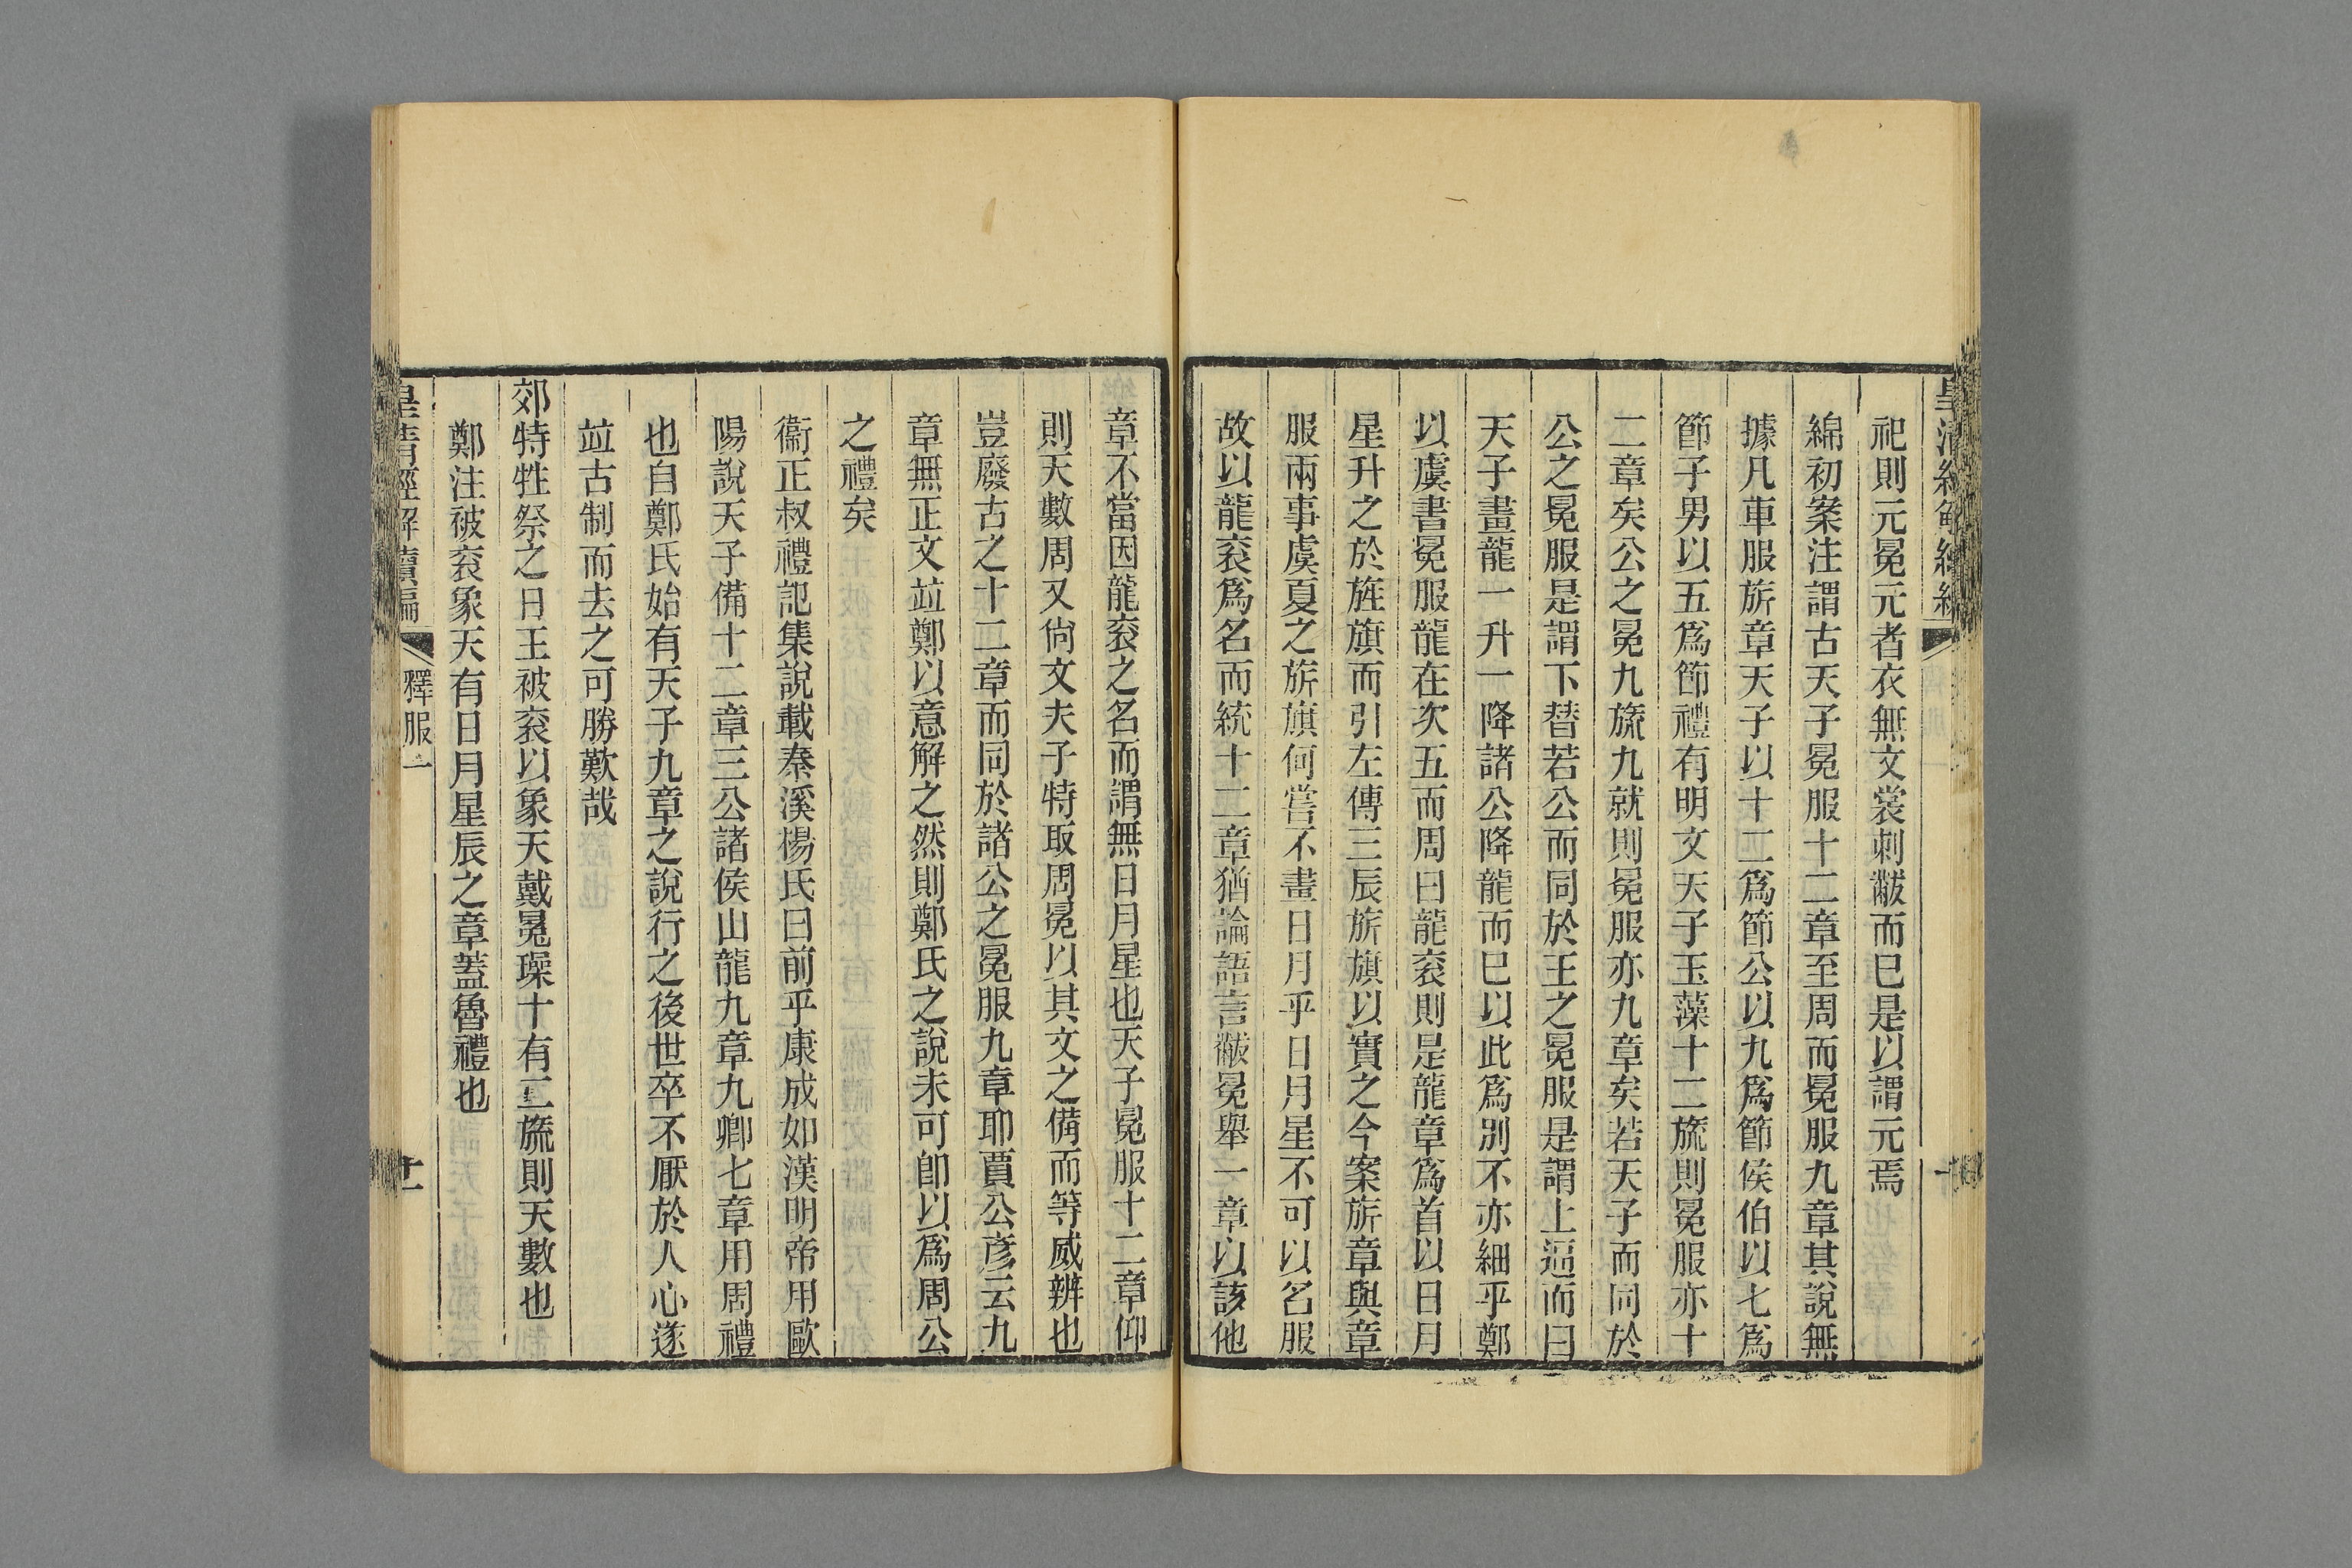 祀則元冕元者衣無文裳刺黻而巳是以謂元焉
綿初案注謂古天子冕服十二章至周而冕服九章其說無
據凡車服旂章天子以十二爲節公以九爲節侯伯以七爲
節子男以五爲節禮有明文天子玉藻十二旒則冕服亦十
二章矣公之冕九旒九就則冕服亦九章矣若天子而同於
公之冕服是謂下替若公而同於王之冕服是謂上逼而曰
天子畫龍一升一降諸公降龍而巳以此爲別不亦細乎鄭
以虞書冕服龍在次五而周曰龍衮則是龍章爲首以日月
星升之於旌旗而引左傳三辰旂旗以實之今案旂章與章
服兩事虞夏之旂旗何嘗不畫日月乎日月星不可以名服
故以龍衮爲名而統十二章猶論語言黻冕舉一章以該他
章不當因龍衮之名而謂無日月星也天子冕服十二章仰
則天數周又尙文夫子特取周冕以其文之備而等威辨也
豈廢古之十二章而同於諸公之冕服九章耶賈公彥云九
章無正文竝鄭以意解之然則鄭氏之說未可卽以爲周公
之禮矣
衞正叔禮記集說載秦溪楊氏曰前乎康成如漢明帝用歐
陽說天子備十二章三公諸侯山龍九章九卿七章用周禮
也自鄭氏始有天子九章之說行之後世卒不厭於人心遂
竝古制而去之可勝歎哉
郊特牲祭之日王被衮以象天戴冕璪十有二旒則天數也
鄭注被衮象天有日月星辰之章蓋魯禮也
皇清經解續編
釋服一